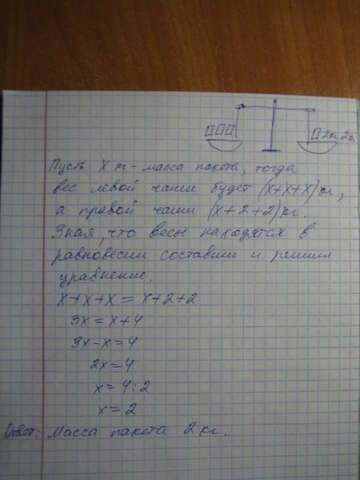 2кг 2кг
Пусть X кг - масса пакета, тогда
вес левой чаши будет (x+x+x)кг,
а правой чаши (x+2+2)кг.
Зная, что весы находятся в
равновесии составим и решим
уравнение.
x+x+x=x+2+2
3x=x+4
3x-x=4
2x=4
x=4:2
x=2
Ответ: Масса пакета 2 кг.